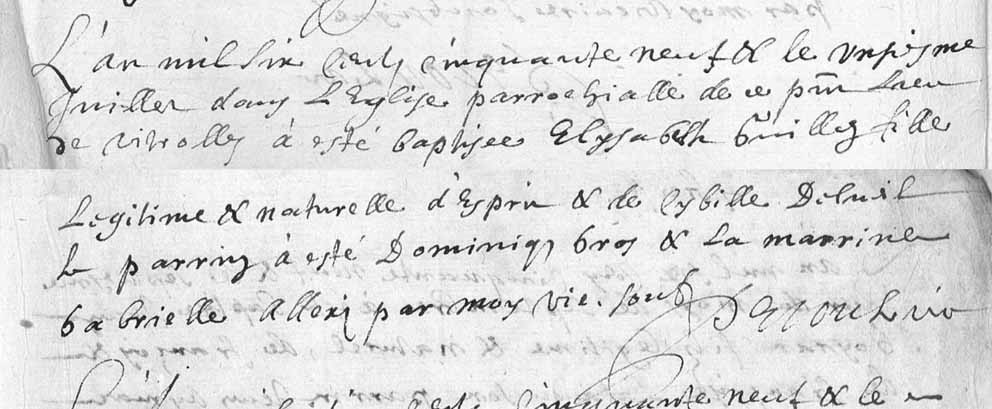 L'an mil six cents cinquante neuf & le unsiesme
Juillet dans L'Eglise parrochialle de ce pnt Lieu
de vitrolles à esté baptisee Elysabeth Guilhen fille
Legitime & naturelle d'Esprit & de Sybille Deluil
le parrin à esté Dominiq Gros & La marrine
Gabrielle Allexi par moy vic. soubs
cinquante neuf & le